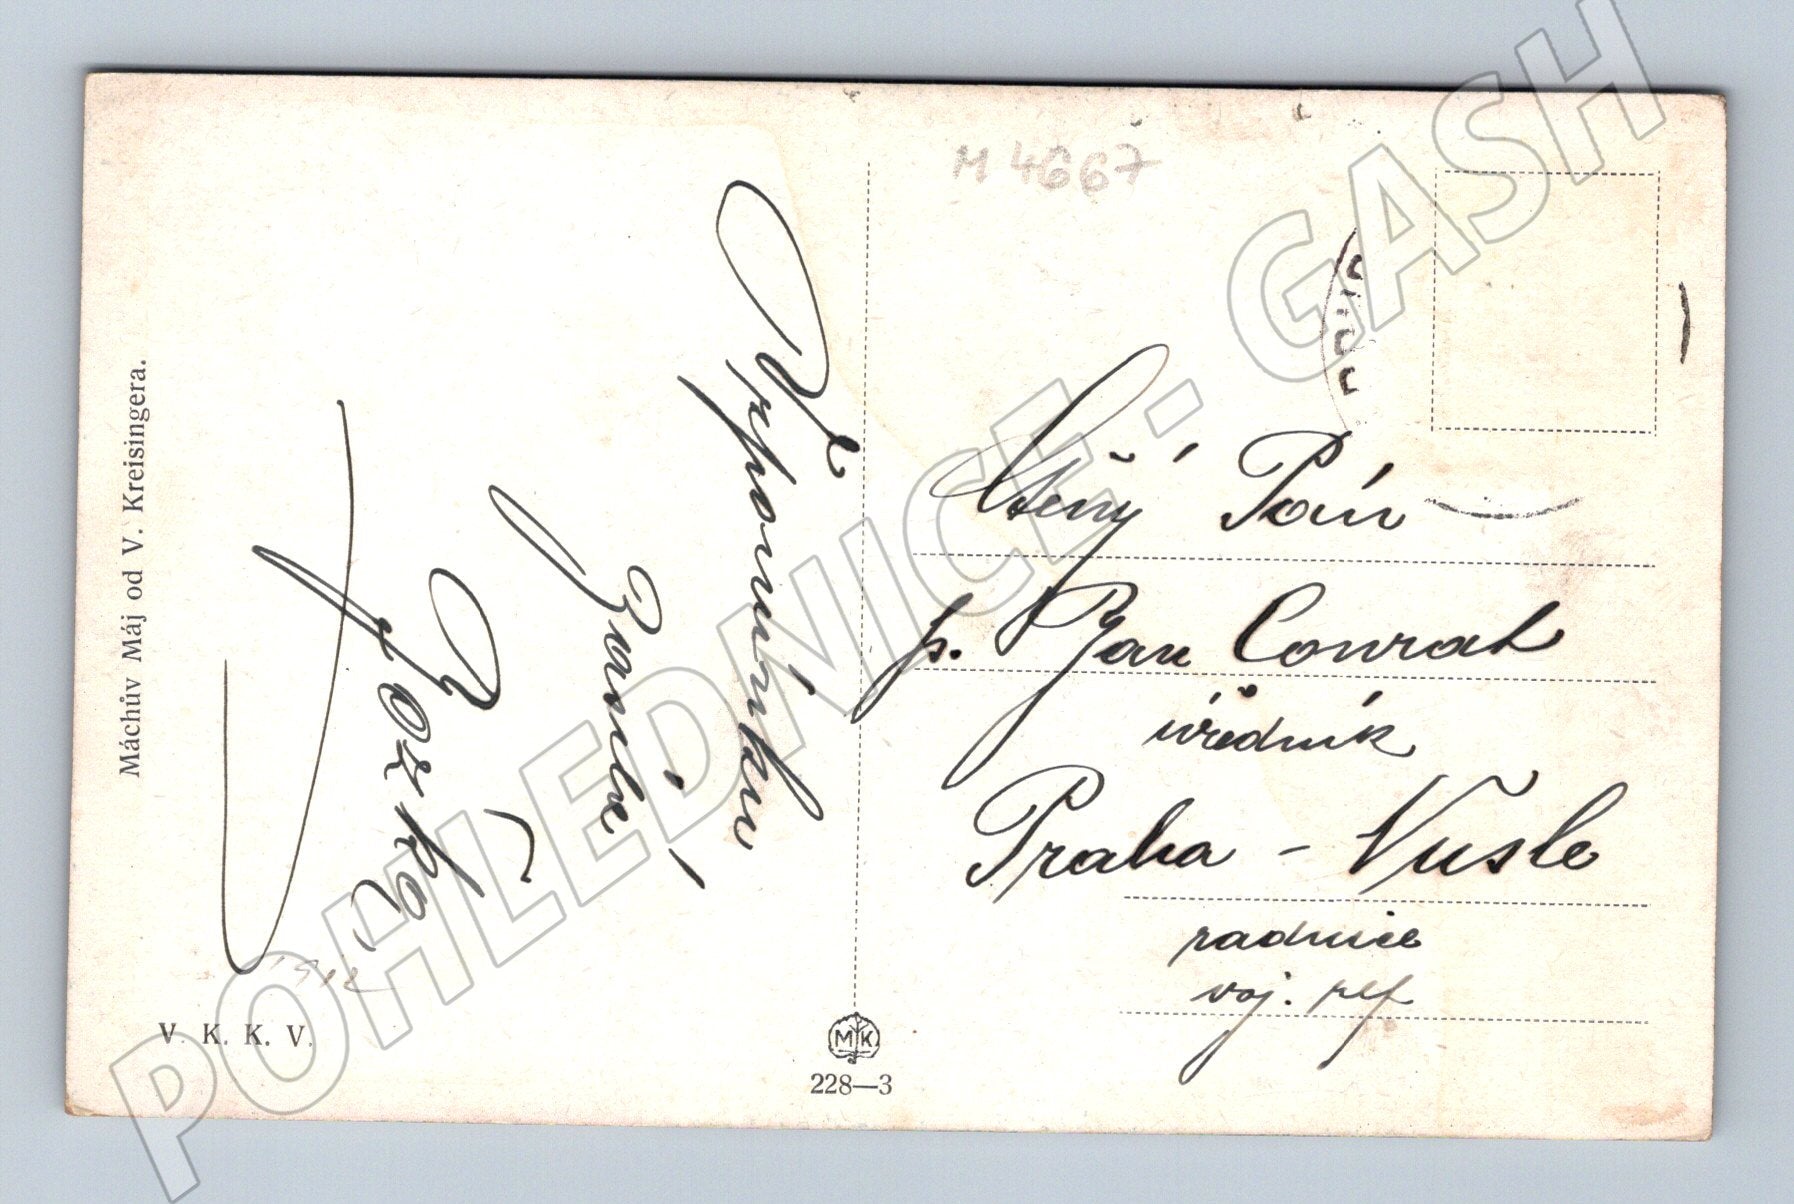 Máchův Máj od V. Kreisingera.
Vzpomínku
zasílá
V. K. K. V.
M K
228—3
M 4667
Ctěný Pán
p. Jan Conrad
úředník
Praha - Nusle
radnice
voj. ref
POHLEDNICE - GASH